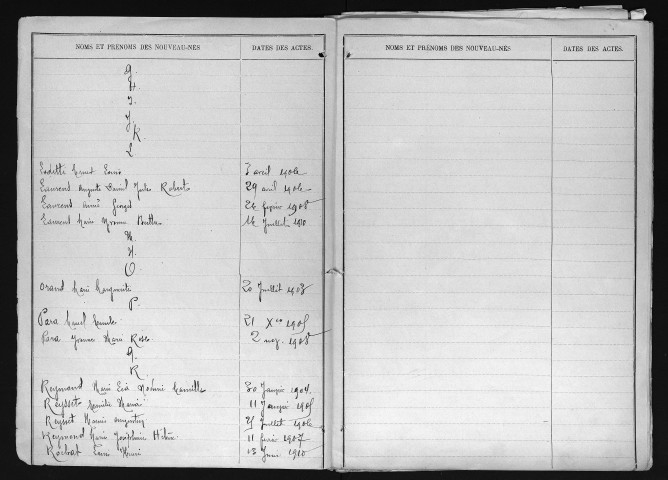 NOMS ET PRÉNOMS DES NOUVEAU-NÉS DATES DES ACTES.
G.
H.
I.
J.
K
L
Ernest Louis 7 avril 1906
Laurent Auguste Daniel Jules Robert 29 avril 1906
Laurent Aimé Georges 26 février 1908
Laurent Marie Yvonne 14 Juillet 1910
M
N.
O.
Orand Marie Marguerite 20 Juillet 1903
P.
Para 21 Xbre 1905
Para Yvonne Marie Rose 2 nov. 1908
Q.
R.
Reymond Marie Noémie Camille 30 Janvier 1904
Reysset Emilie Maria 11 Janvier 1905
Reysset Augustin 25 Juillet 1906
Reymond Marie Joséphine 11 février 1907
Rochat Henri 13 1910
NOMS ET PRÉNOMS DES NOUVEAU-NÉS DATES DES ACTES.